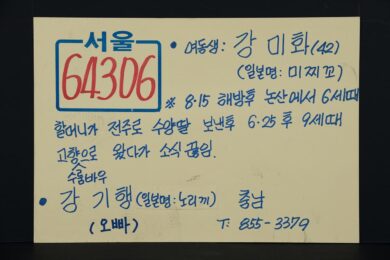 서울
64306
• 여동생: 강 미화 (42)
(일본명: 미찌꼬)
※ 8·15 해방후 논산에서 6세때
할머니가 전주로 수양딸 보낸후 6·25 후 9세때
고향으로 왔다가 소식 끊임.
숫룸바우
• 강 기행 (일본명: 노리끼) 충남
(오빠) T: 855-3379